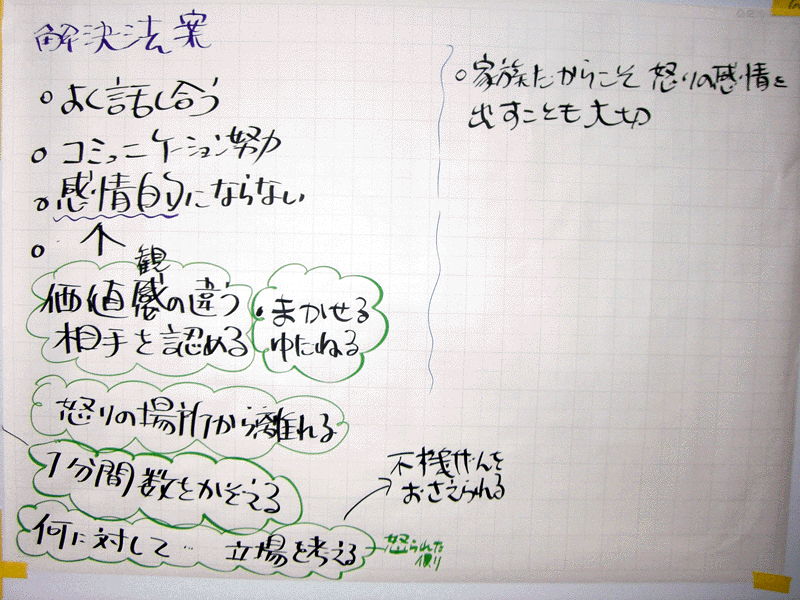 解決法案
○よく話し合う
○コミュニケーション努力
○感情的にならない
○ ↑
観
価値感の違う
相手を認める
・まかせる
ゆだねる
怒りの場所から離れる
1分間数をかぞえる
何に対して… 立場を考える
怒られた
側
不機げんを
おさえられる
○家族だからこそ 怒りの感情を
出すことも大切